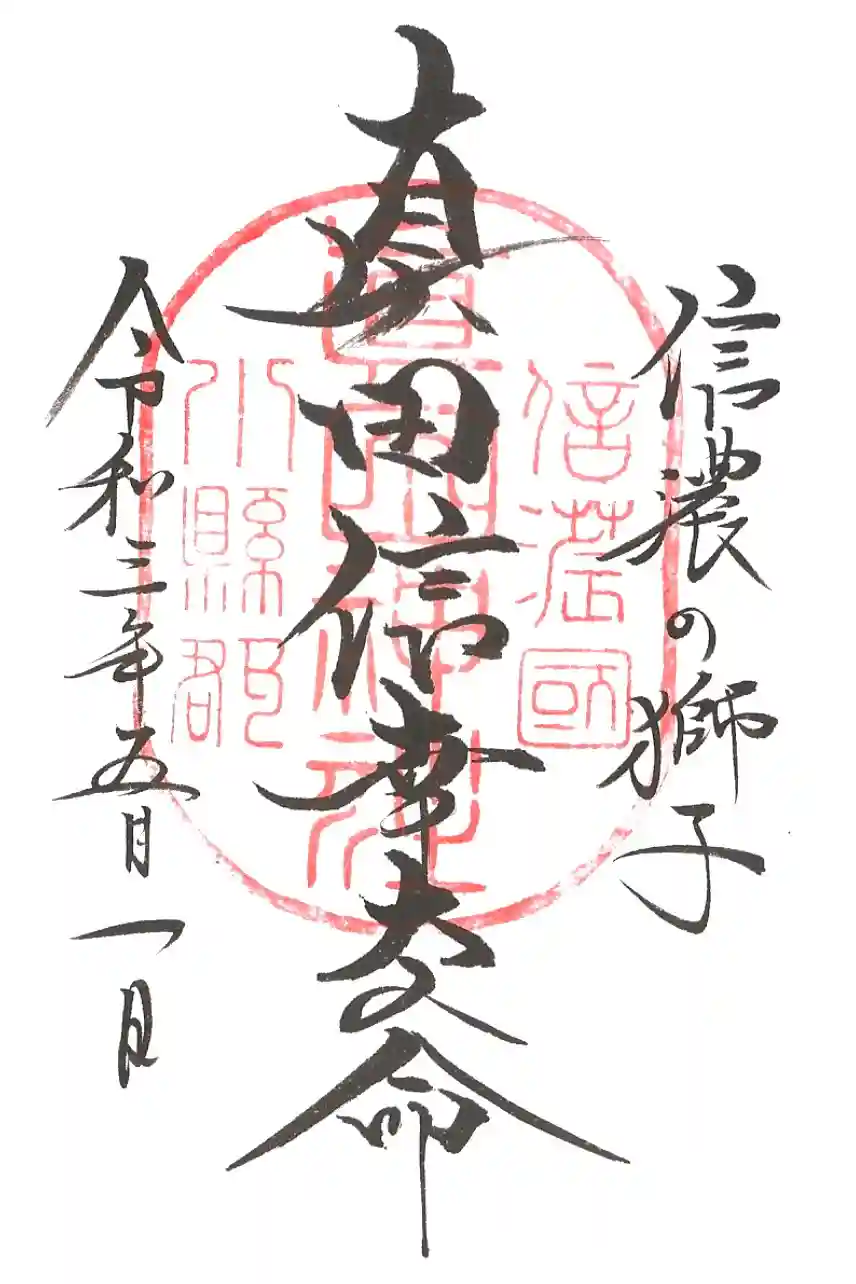 信濃の獅子
真田信幸大人命
令和三年五月一日
信濃國
眞田神社
小縣郡